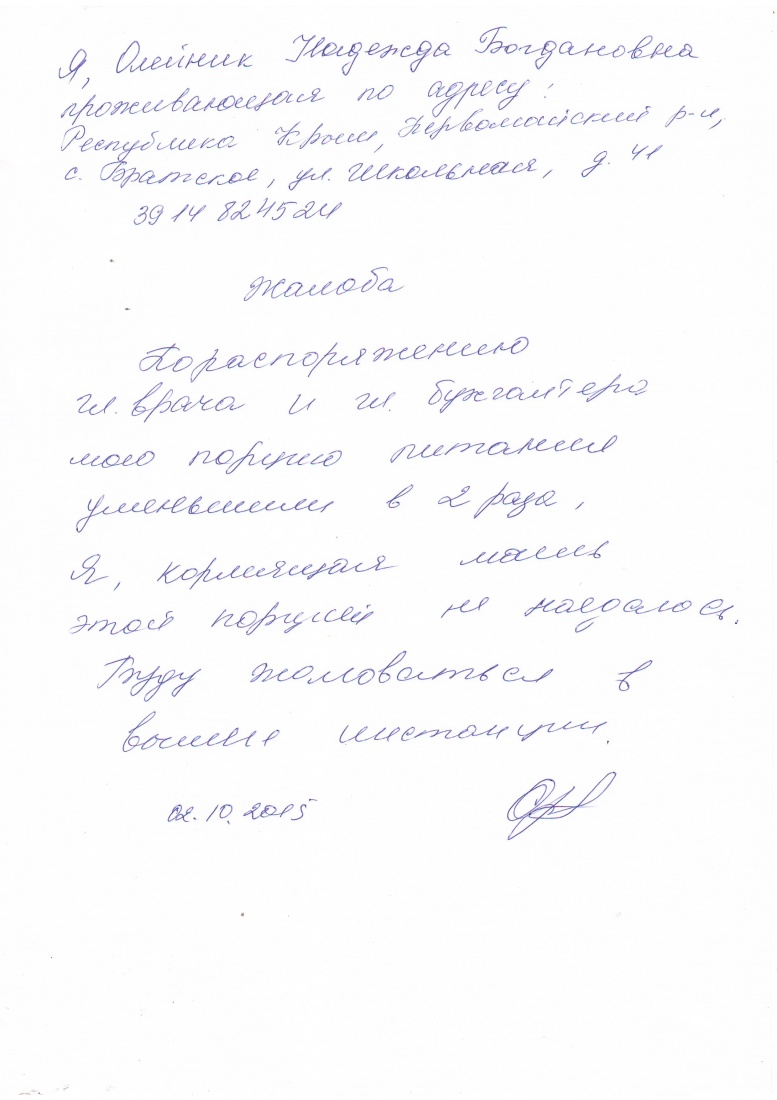 Я, Олейник Надежда Богдановна
проживающая по адресу:
Республика Крым, Первомайский р-н,
с. Братское, ул. Школьная, д. 41
39 14 824524
Жалоба
По распоряжению
гл. врача и гл. бухгалтера
мою порцию питания
уменьшили в 2 раза,
Я, кормящая мать
этой порцией не наедалось.
Буду жаловаться в
высшие инстанции.
02.10.2015